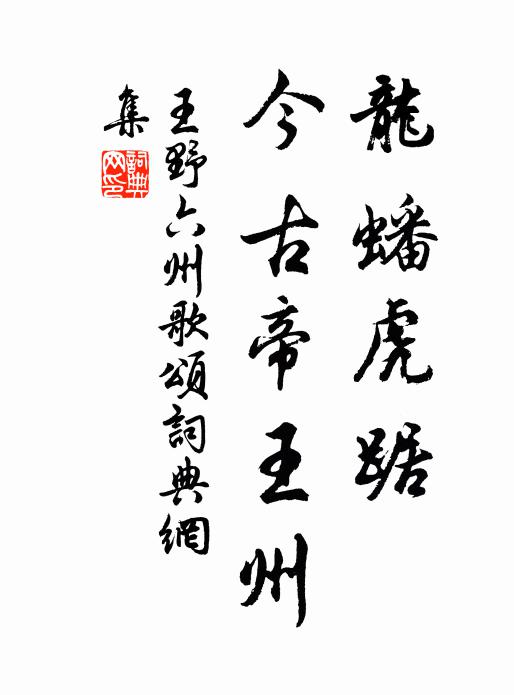 龍蟠虎踞
今古帝王州
王野六州歌頌詞典網
集
詞典
网印